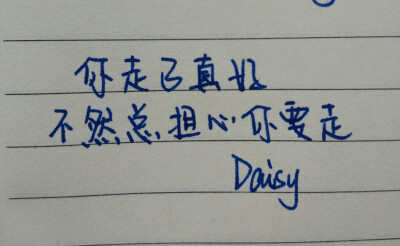 你走了真好
不然总担心你要走
Daisy